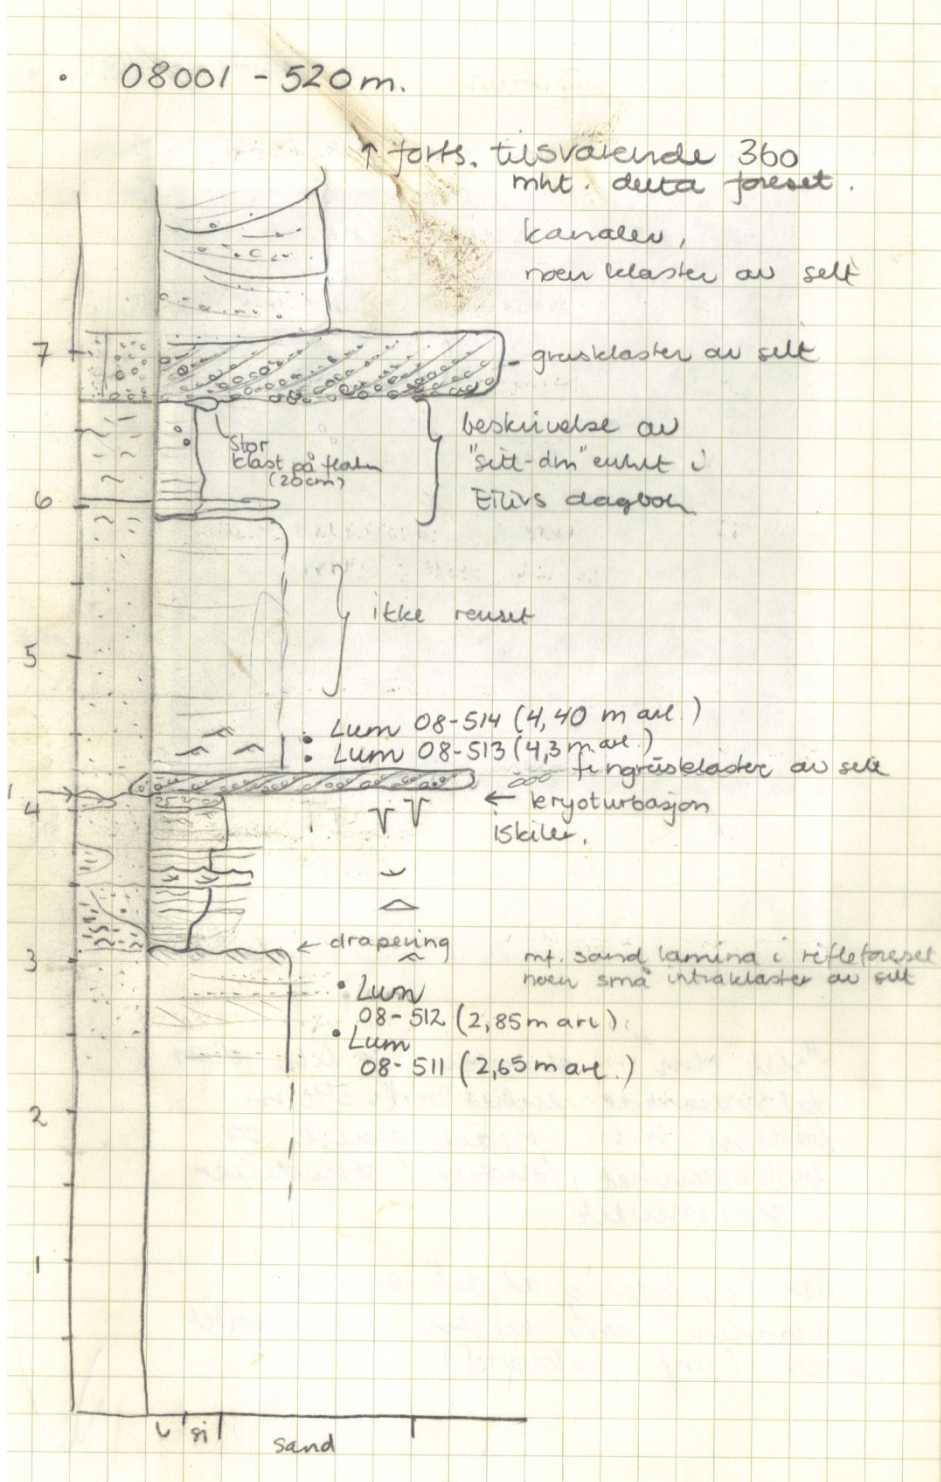 • 08001 - 520m.
↑ forts. tilsvarende 360
mht. delta foreset.
kanaler,
noen klaster av silt
7
- grusklaster av silt
beskrivelse av
"silt-dm" enhet i
Eilivs dagbok
Stor
klast på flaten
(20cm)
6
ikke renset
5
• Lum 08-514 (4,40 m arl.)
• Lum 08-513 (4,3 m arl.)
fingrusklaster av silt
← kryoturbasjon
iskiler.
4
← drapering
3
mt. sand lamina i rifleforeset
noen små intraklaster av silt
• Lum
08-512 (2,85 m arl)
• Lum
08-511 (2,65 m arl.)
2
1
L si sand